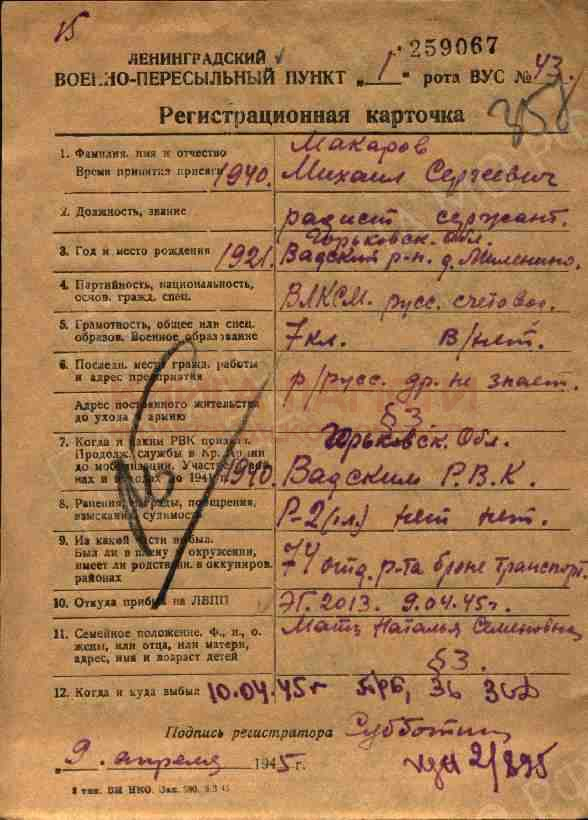 15
259067
ЛЕНИНГРАДСКИЙ
ВОЕННО-ПЕРЕСЫЛЬНЫЙ ПУНКТ „1“ рота ВУС № 43.
Регистрационная карточка
1. Фамилия, имя и отчество Макаров
Время принятия присяги 1940. Михаил Сергеевич
2. Должность, звание радист сержант.
Горьковск. Обл.
3. Год и место рождения 1921. Вадский р-н. д. Миленино.
4. Партийность, национальность,
основ. гражд. спец. ВЛКСМ. русс. счетовод.
5. Грамотность, общее или спец.
образов. Военное образование 7 кл. в/нет.
6. Последн. место гражд. работы
и адрес предприятия р/русс. др. не знает.
Адрес постоянного жительства
до ухода в армию §3.
7. Когда и каким РВК призван. Горьковск. Обл.
Продолж. службы в Кр. Армии
до мобилизации. Участ
нах и походах до 1941 1940. Вадским Р.В.К.
8. Ранения, награды, поощрения,
взыскания, судимость Р-2(гл) нет нет.
9. Из какой части выбыл.
Был ли в плену окружении,
имеет ли родствен. в оккупиров.
районах 74 отд. р-та броне транспорт.
10. Откуда прибыл на ЛВПП ЭГ. 2013. 9.04.45г.
11. Семейное положение. Ф., и., о.
жены, или отца, или матери,
адрес, имя и возраст детей Мать Наталья Семеновна
§3.
12. Когда и куда выбыл 10.04.45г
Подпись регистратора Субботин
„9. апреля 1945 г.
2/895